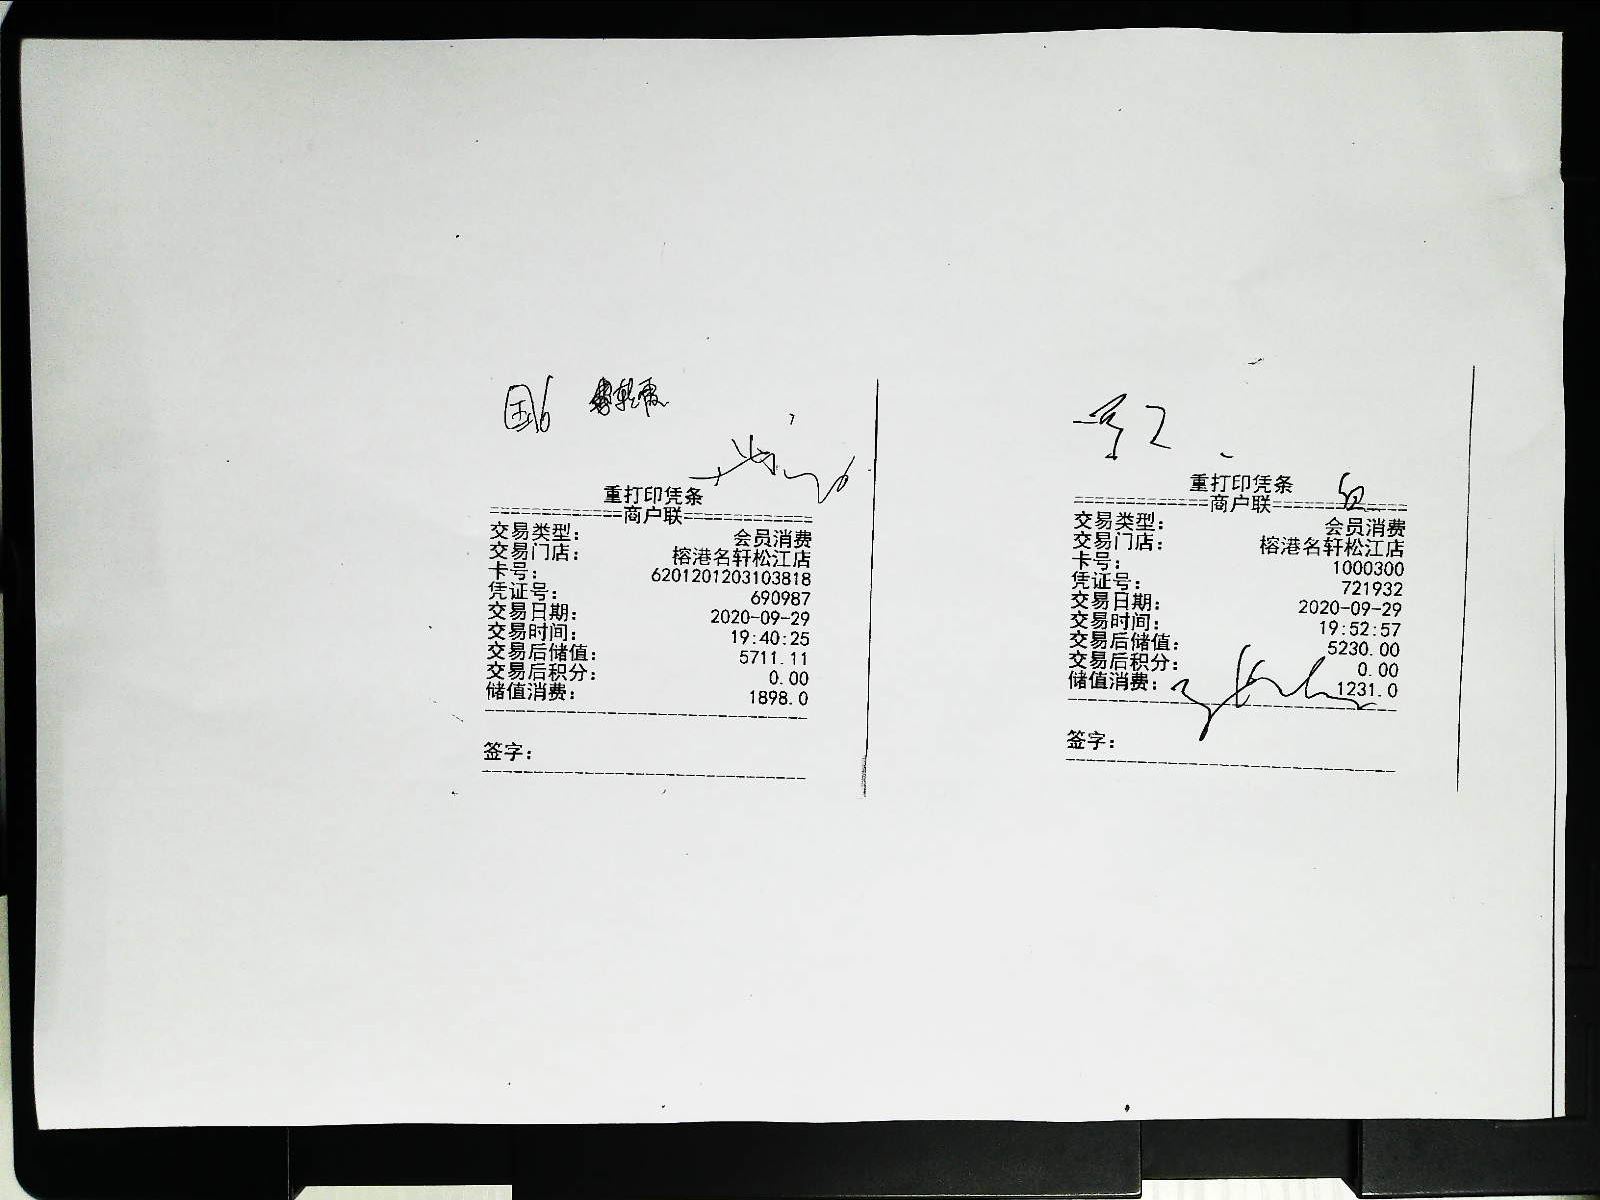 重打印凭条
=============商户联=============
交易类型： 会员消费
交易门店： 榕港名轩松江店
卡号： 6201201203103818
凭证号： 690987
交易日期： 2020-09-29
交易时间： 19:40:25
交易后储值： 5711.11
交易后积分： 0.00
储值消费： 1898.0
签字：
重打印凭条
=============商户联=============
交易类型： 会员消费
交易门店： 榕港名轩松江店
卡号： 1000300
凭证号： 721932
交易日期： 2020-09-29
交易时间： 19:52:57
交易后储值： 5230.00
交易后积分： 0.00
储值消费： 1231.0
签字：